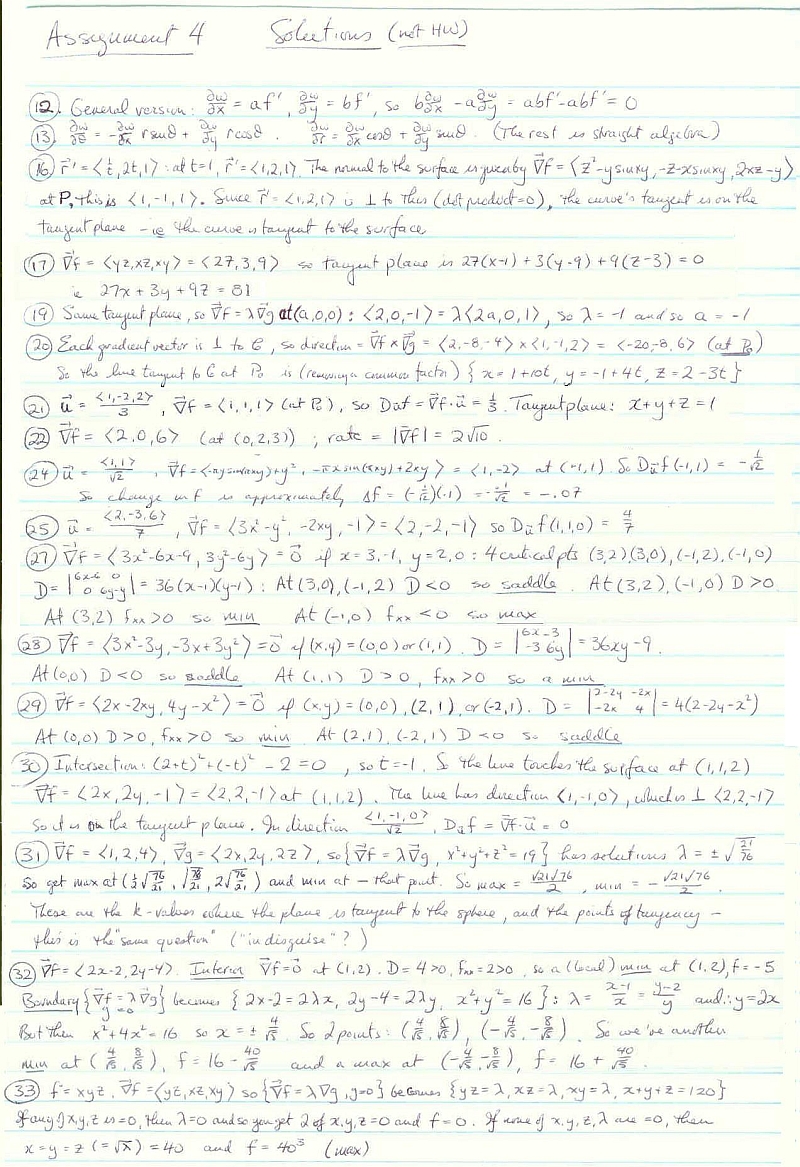 Assignment 4 Solutions (not HW)
(12). General version: ∂w/∂x = af', ∂w/∂y = bf', so b∂w/∂x - a∂w/∂y = abf' - abf' = 0
(13). ∂w/∂θ = -∂w/∂x r sinθ + ∂w/∂y r cosθ. ∂w/∂r = ∂w/∂x cosθ + ∂w/∂y sinθ. (The rest is straight algebra)
(16) r⃗' = <1/t, 2t, 1> : at t=1, r⃗' = <1,2,1>. The normal to the surface is given by ∇⃗f = <z²-y sin xy, -z-x sin xy, 2xz-y>
at P, this is <1,-1,1>. Since r⃗' = <1,2,1> is ⊥ to this (dot product=0), the curve's tangent is on the
tangent plane - ie the curve is tangent to the surface
(17) ∇⃗f = <yz, xz, xy> = <27,3,9> so tangent plane is 27(x-1) + 3(y-9) + 9(z-3) = 0
ie 27x + 3y + 9z = 81
(19) Same tangent plane, so ∇⃗f = λ∇⃗g at (a,0,0) : <2,0,-1> = λ<2a,0,1>, so λ = -1 and so a = -1
(20) Each gradient vector is ⊥ to C, so direction = ∇⃗f × ∇⃗g = <2,-8,-4> × <1,-1,2> = <-20,-8,6> (at P₀)
So the line tangent to C at P₀ is (removing a common factor) {x = 1+10t, y = -1+4t, z = 2-3t}
(21) u⃗ = <1,-2,2>/3, ∇⃗f = <1,1,1> (at P₀), so Duf = ∇⃗f·u⃗ = 1/3. Tangent plane: x+y+z = 1
(22) ∇⃗f = <2,0,6> (at (0,2,3)) ; rate = |∇⃗f| = 2√10.
(24) u⃗ = <1,1>/√2, ∇⃗f = <-πy sin(πxy)+y², -πx sin(πxy)+2xy> = <1,-2> at (-1,1). So D_u f(-1,1) = -1/√2
So change in f is approximately Δf = (-1/√2)(.1) = -.1/√2 = -.07
(25) u⃗ = <2,-3,6>/7, ∇⃗f = <3x²-y², -2xy, -1> = <2,-2,-1> so D_u f(1,1,0) = 4/7
(27) ∇⃗f = <3x²-6x-9, 3y²-6y> = 0⃗ if x = 3,-1, y = 2,0 : 4 critical pts (3,2)(3,0), (-1,2), (-1,0)
D = |6x-6 0 / 0 6y-y| = 36(x-1)(y-1) : At (3,0), (-1,2) D<0 so saddle. At (3,2), (-1,0) D>0.
At (3,2) fxx>0 so min At (-1,0) fxx<0 so max
(28) ∇⃗f = <3x²-3y, -3x+3y²> = 0⃗ if (x,y) = (0,0) or (1,1). D = |6x -3 / -3 6y| = 36xy-9.
At (0,0) D<0 so saddle At (1,1) D>0, fxx>0 so a min
(29) ∇⃗f = <2x-2xy, 4y-x²> = 0⃗ if (x,y) = (0,0), (2,1), or (-2,1). D = |2-2y -2x / -2x 4| = 4(2-2y-x²)
At (0,0) D>0, fxx>0 so min At (2,1), (-2,1) D<0 so saddle
(30) Intersection: (2+t)²+(-t)² - 2 = 0, so t=-1. So the line touches the surface at (1,1,2)
∇⃗f = <2x, 2y, -1> = <2,2,-1> at (1,1,2). The line has direction <1,-1,0>, which is ⊥ <2,2,-1>
So it is on the tangent plane. In direction <1,-1,0>/√2, D_u f = ∇⃗f·u⃗ = 0
(31) ∇⃗f = <1,2,4>, ∇⃗g = <2x,2y,2z>, so {∇⃗f = λ∇⃗g, x²+y²+z²=19} has solutions λ = ±√(21/76)
So get max at (½√(76/21), √(76/21), 2√(76/21)) and min at - that point. So max = √21√76/2, min = -√21√76/2.
These are the k-values where the plane is tangent to the sphere, and the points of tangency -
this is the "same question" ("in disguise"?)
(32) ∇⃗f = <2x-2, 2y-4>. Interior ∇⃗f=0⃗ at (1,2). D=4>0, fxx=2>0, so a (local) min at (1,2), f=-5
Boundary {∇⃗f = λ∇⃗g, g=0} becomes {2x-2 = 2λx, 2y-4 = 2λy, x²+y²=16} : λ = x-1/x = y-2/y and ∴ y=2x
But then x²+4x²=16 so x = ±4/√5. So 2 points: (4/√5, 8/√5), (-4/√5, -8/√5). So we've another
min at (4/√5, 8/√5), f = 16 - 40/√5 and a max at (-4/√5, -8/√5), f = 16 + 40/√5.
(33) f = xyz, ∇⃗f = <yz, xz, xy> so {∇⃗f = λ∇⃗g, g=0} becomes {yz=λ, xz=λ, xy=λ, x+y+z=120}
If any of x,y,z is =0, then λ=0 and so you get 2 of x,y,z=0 and f=0. If none of x,y,z,λ are =0, then
x=y=z (=√λ) = 40 and f = 40³ (max)